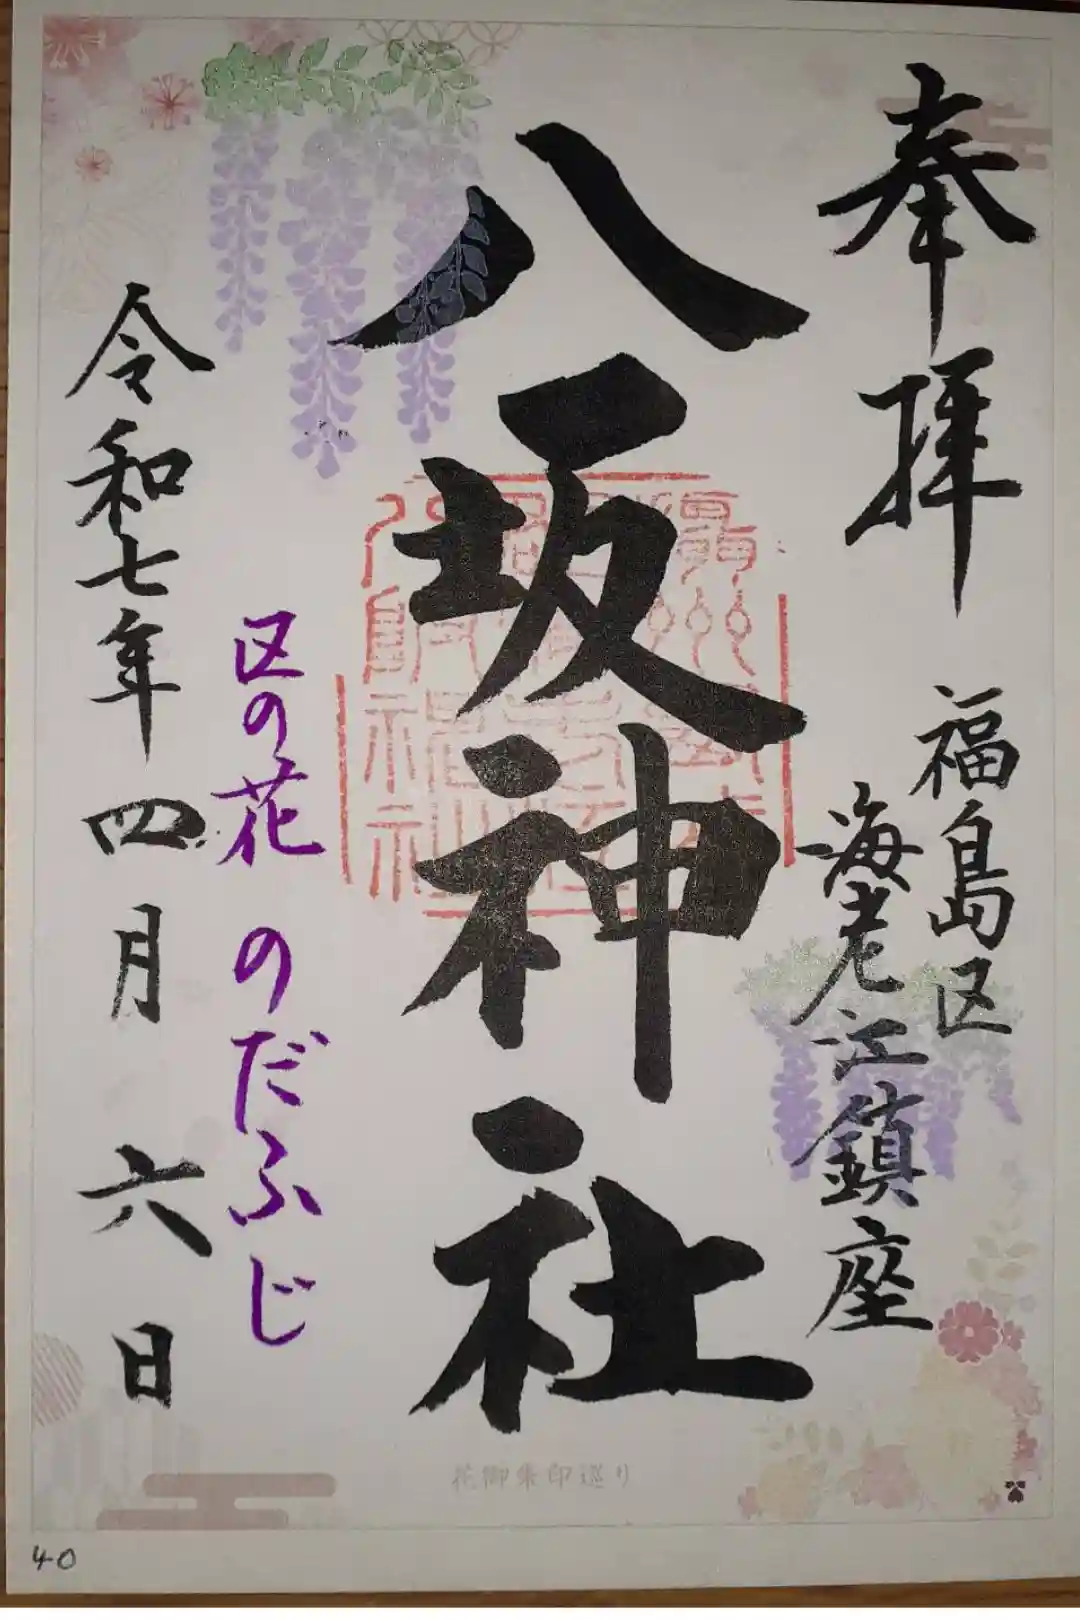 奉拝
福島区
海老江鎮座
八坂神社
区の花 のだふじ
令和七年四月六日
花御朱印巡り
40